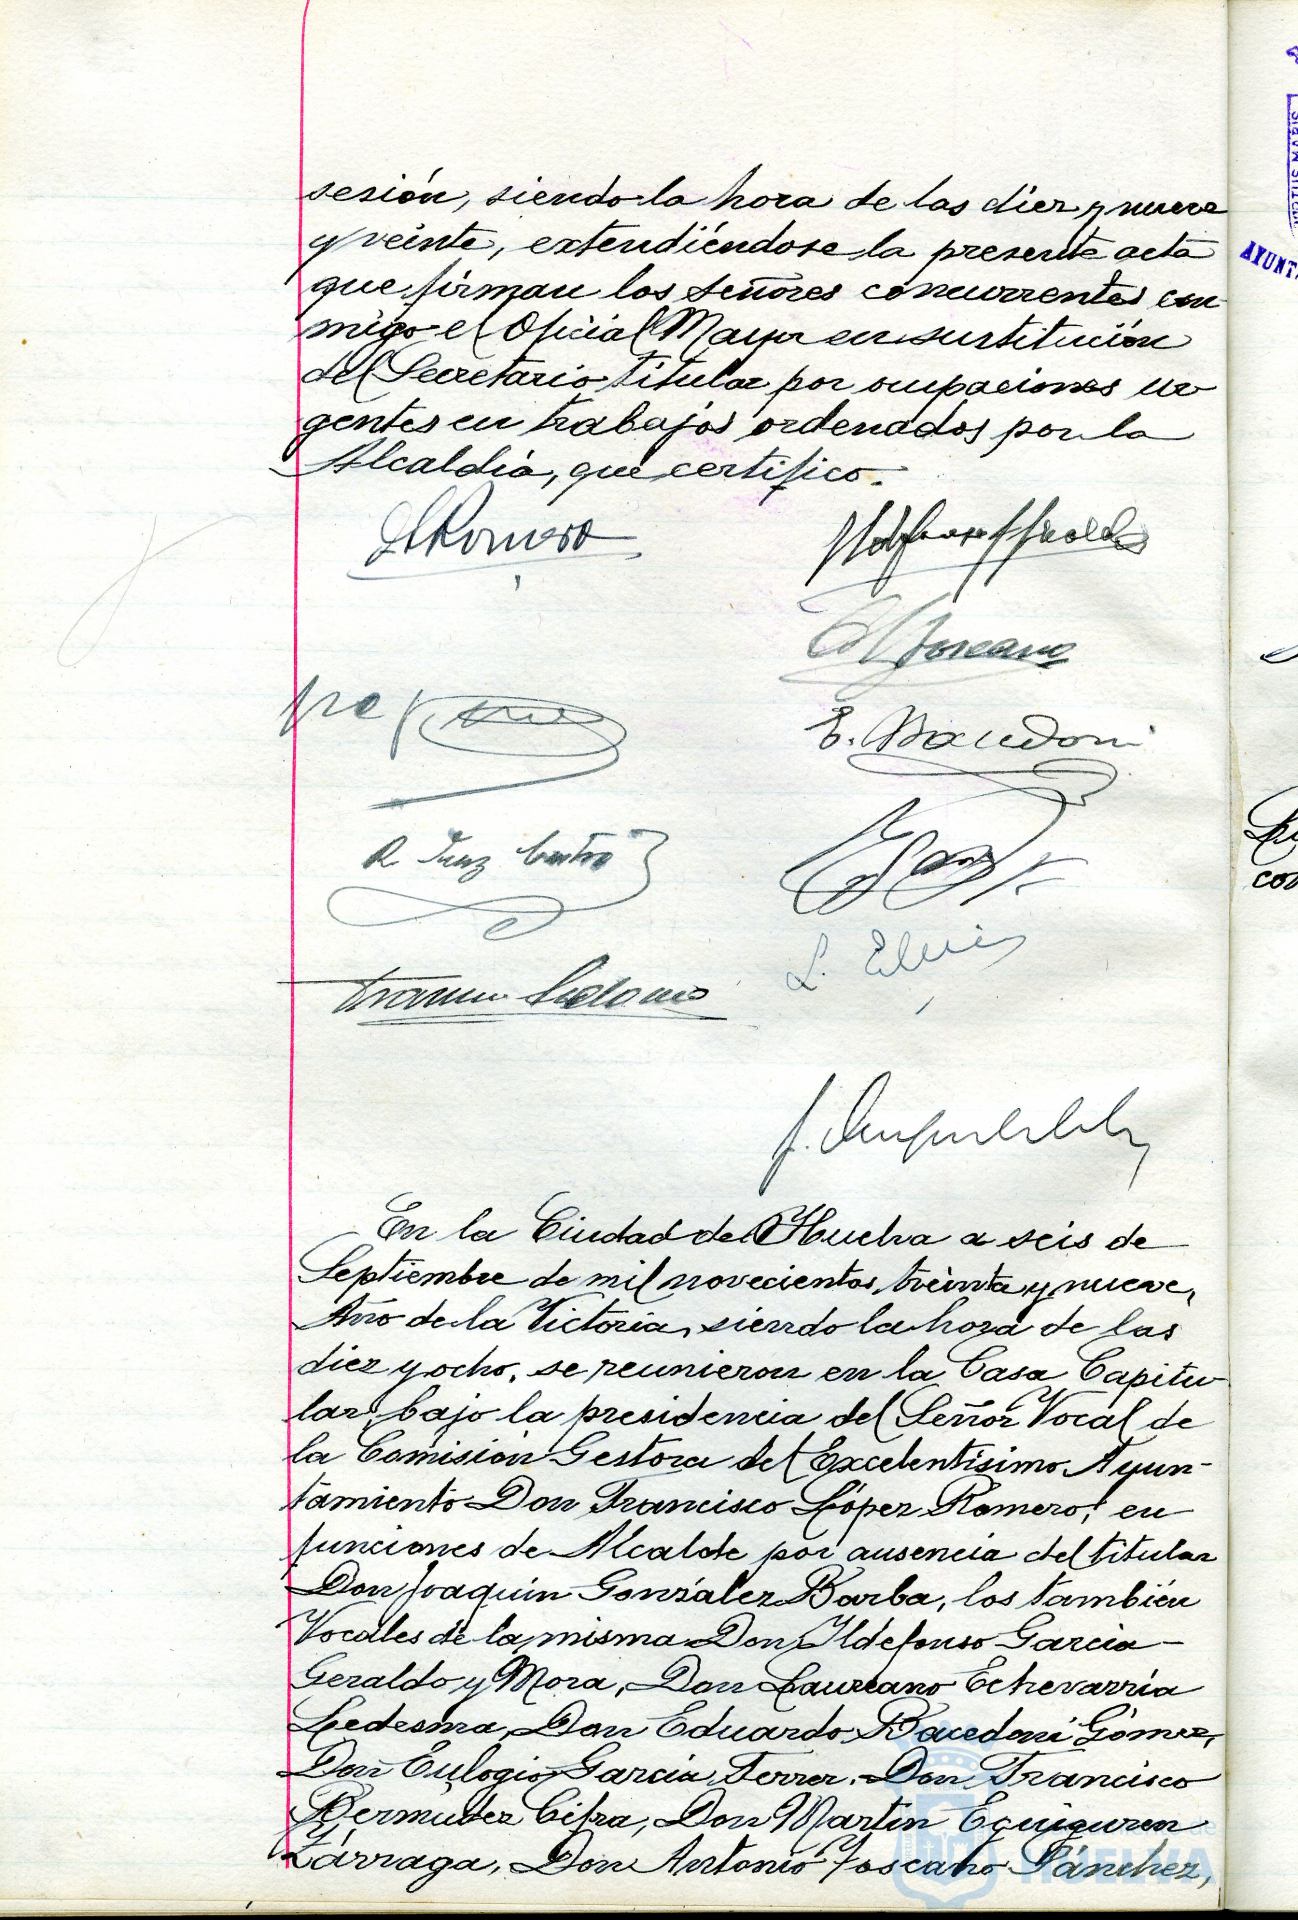 sesión, siendo la hora de las diez y nueve
y veinte, extendiéndose la presente acta
que firman los señores concurrentes con-
migo el Oficial Mayor en sustitución
del Secretario titular por ocupaciones ur-
gentes en trabajos ordenados por la
Alcaldía, que certifico.
Romero
Toscano
E. Bacedoni
R. Diaz Castro
L. E
En la Ciudad de Huelva a seis de
Septiembre de mil novecientos treinta y nueve,
Año de la Victoria, siendo la hora de las
diez y ocho, se reunieron en la Casa Capitu-
lar, bajo la presidencia del Señor Vocal de
la Comisión Gestora del Excelentísimo Ayun-
tamiento Don Francisco López Romero, en
funciones de Alcalde por ausencia del titular
Don Joaquín González Barba, los también
Vocales de la misma Don Ildefonso García-
Geraldo y Mora, Don Laureano Echevarría
Ledesma, Don Eduardo Bacedoni Gómez,
Don Eulogio García Ferrer, Don Francisco
Bermúdez Cifra, Don Martín Eguiguren
Lárraga, Don Antonio Toscano Sánchez,
HUELVA
AYUNT